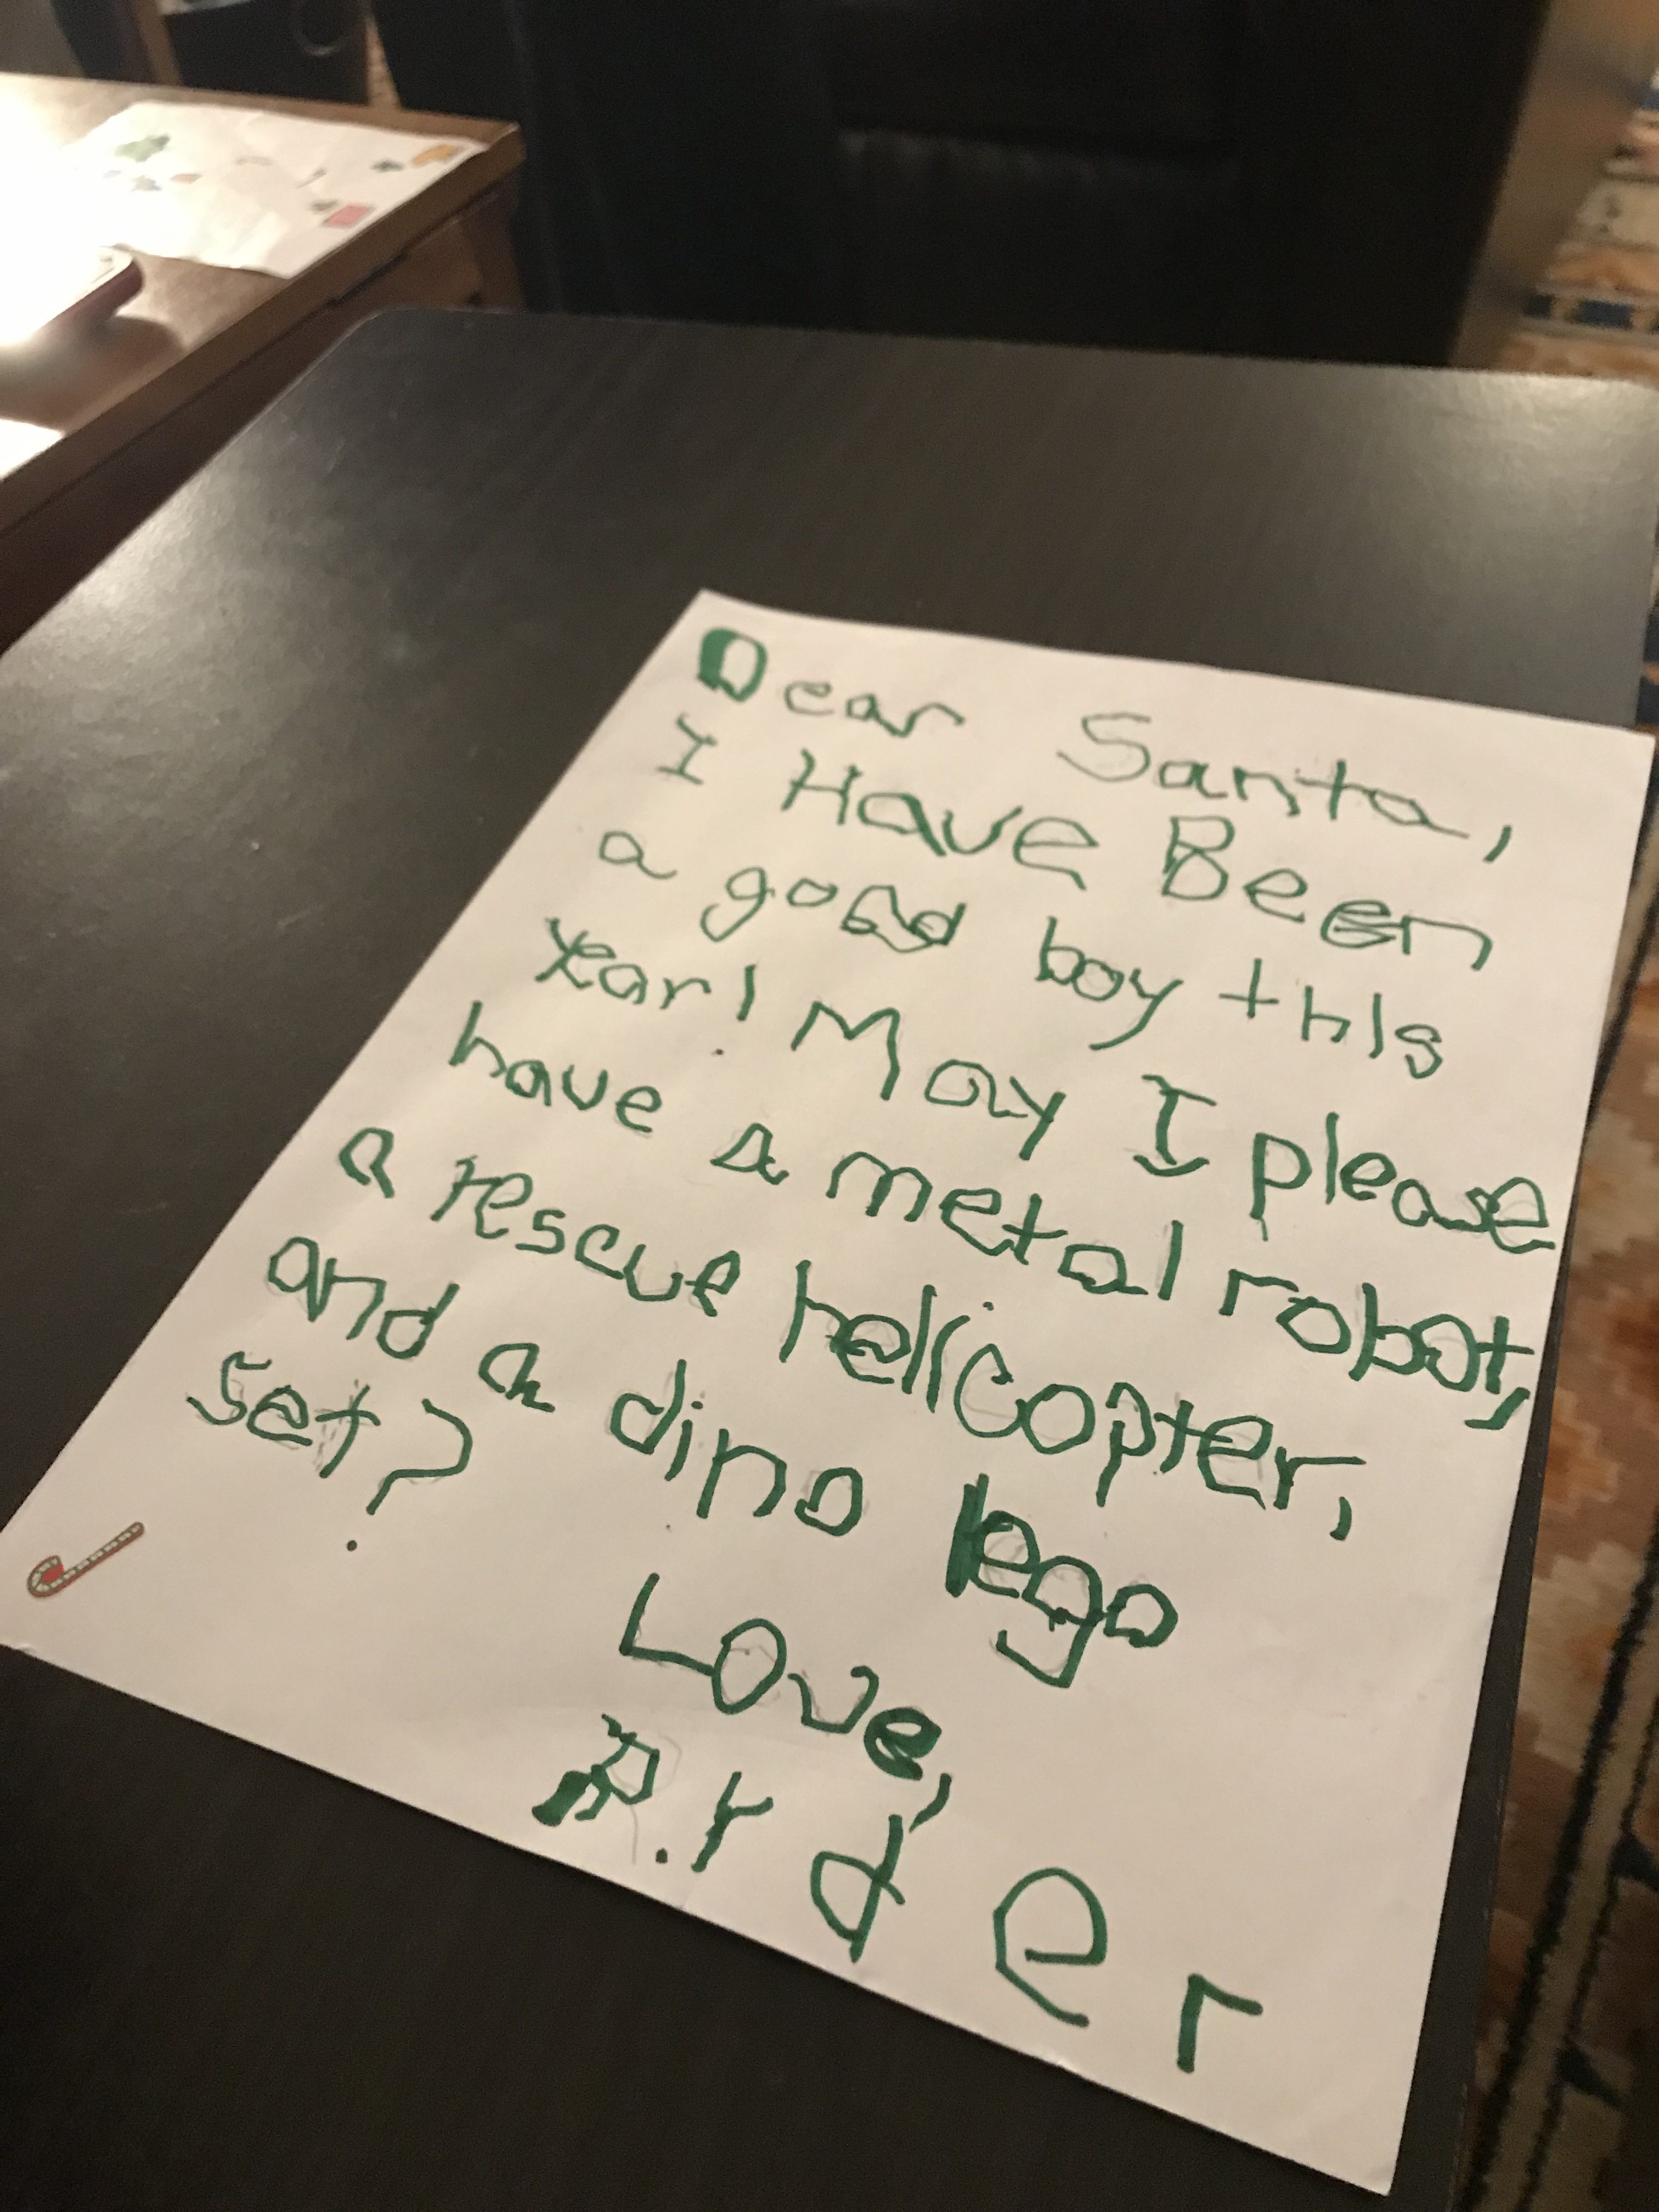 Dear Santa,
I Have Been
a good boy this
year! May I please
have a metal robot,
a rescue helicopter,
and a dino lego
set?
Love,
Ryder